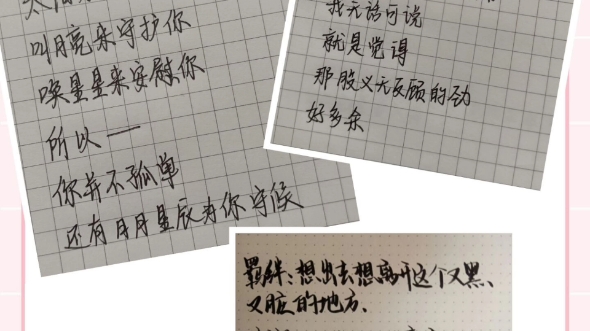 叫月亮来守护你
唤星星来安慰你
所以——
你并不孤单
还有月月星辰为你守候
我无话可说
就是觉得
那股义无反顾的劲
好多余
羁绊：想出去想离开这个又黑、
又脏的地方、